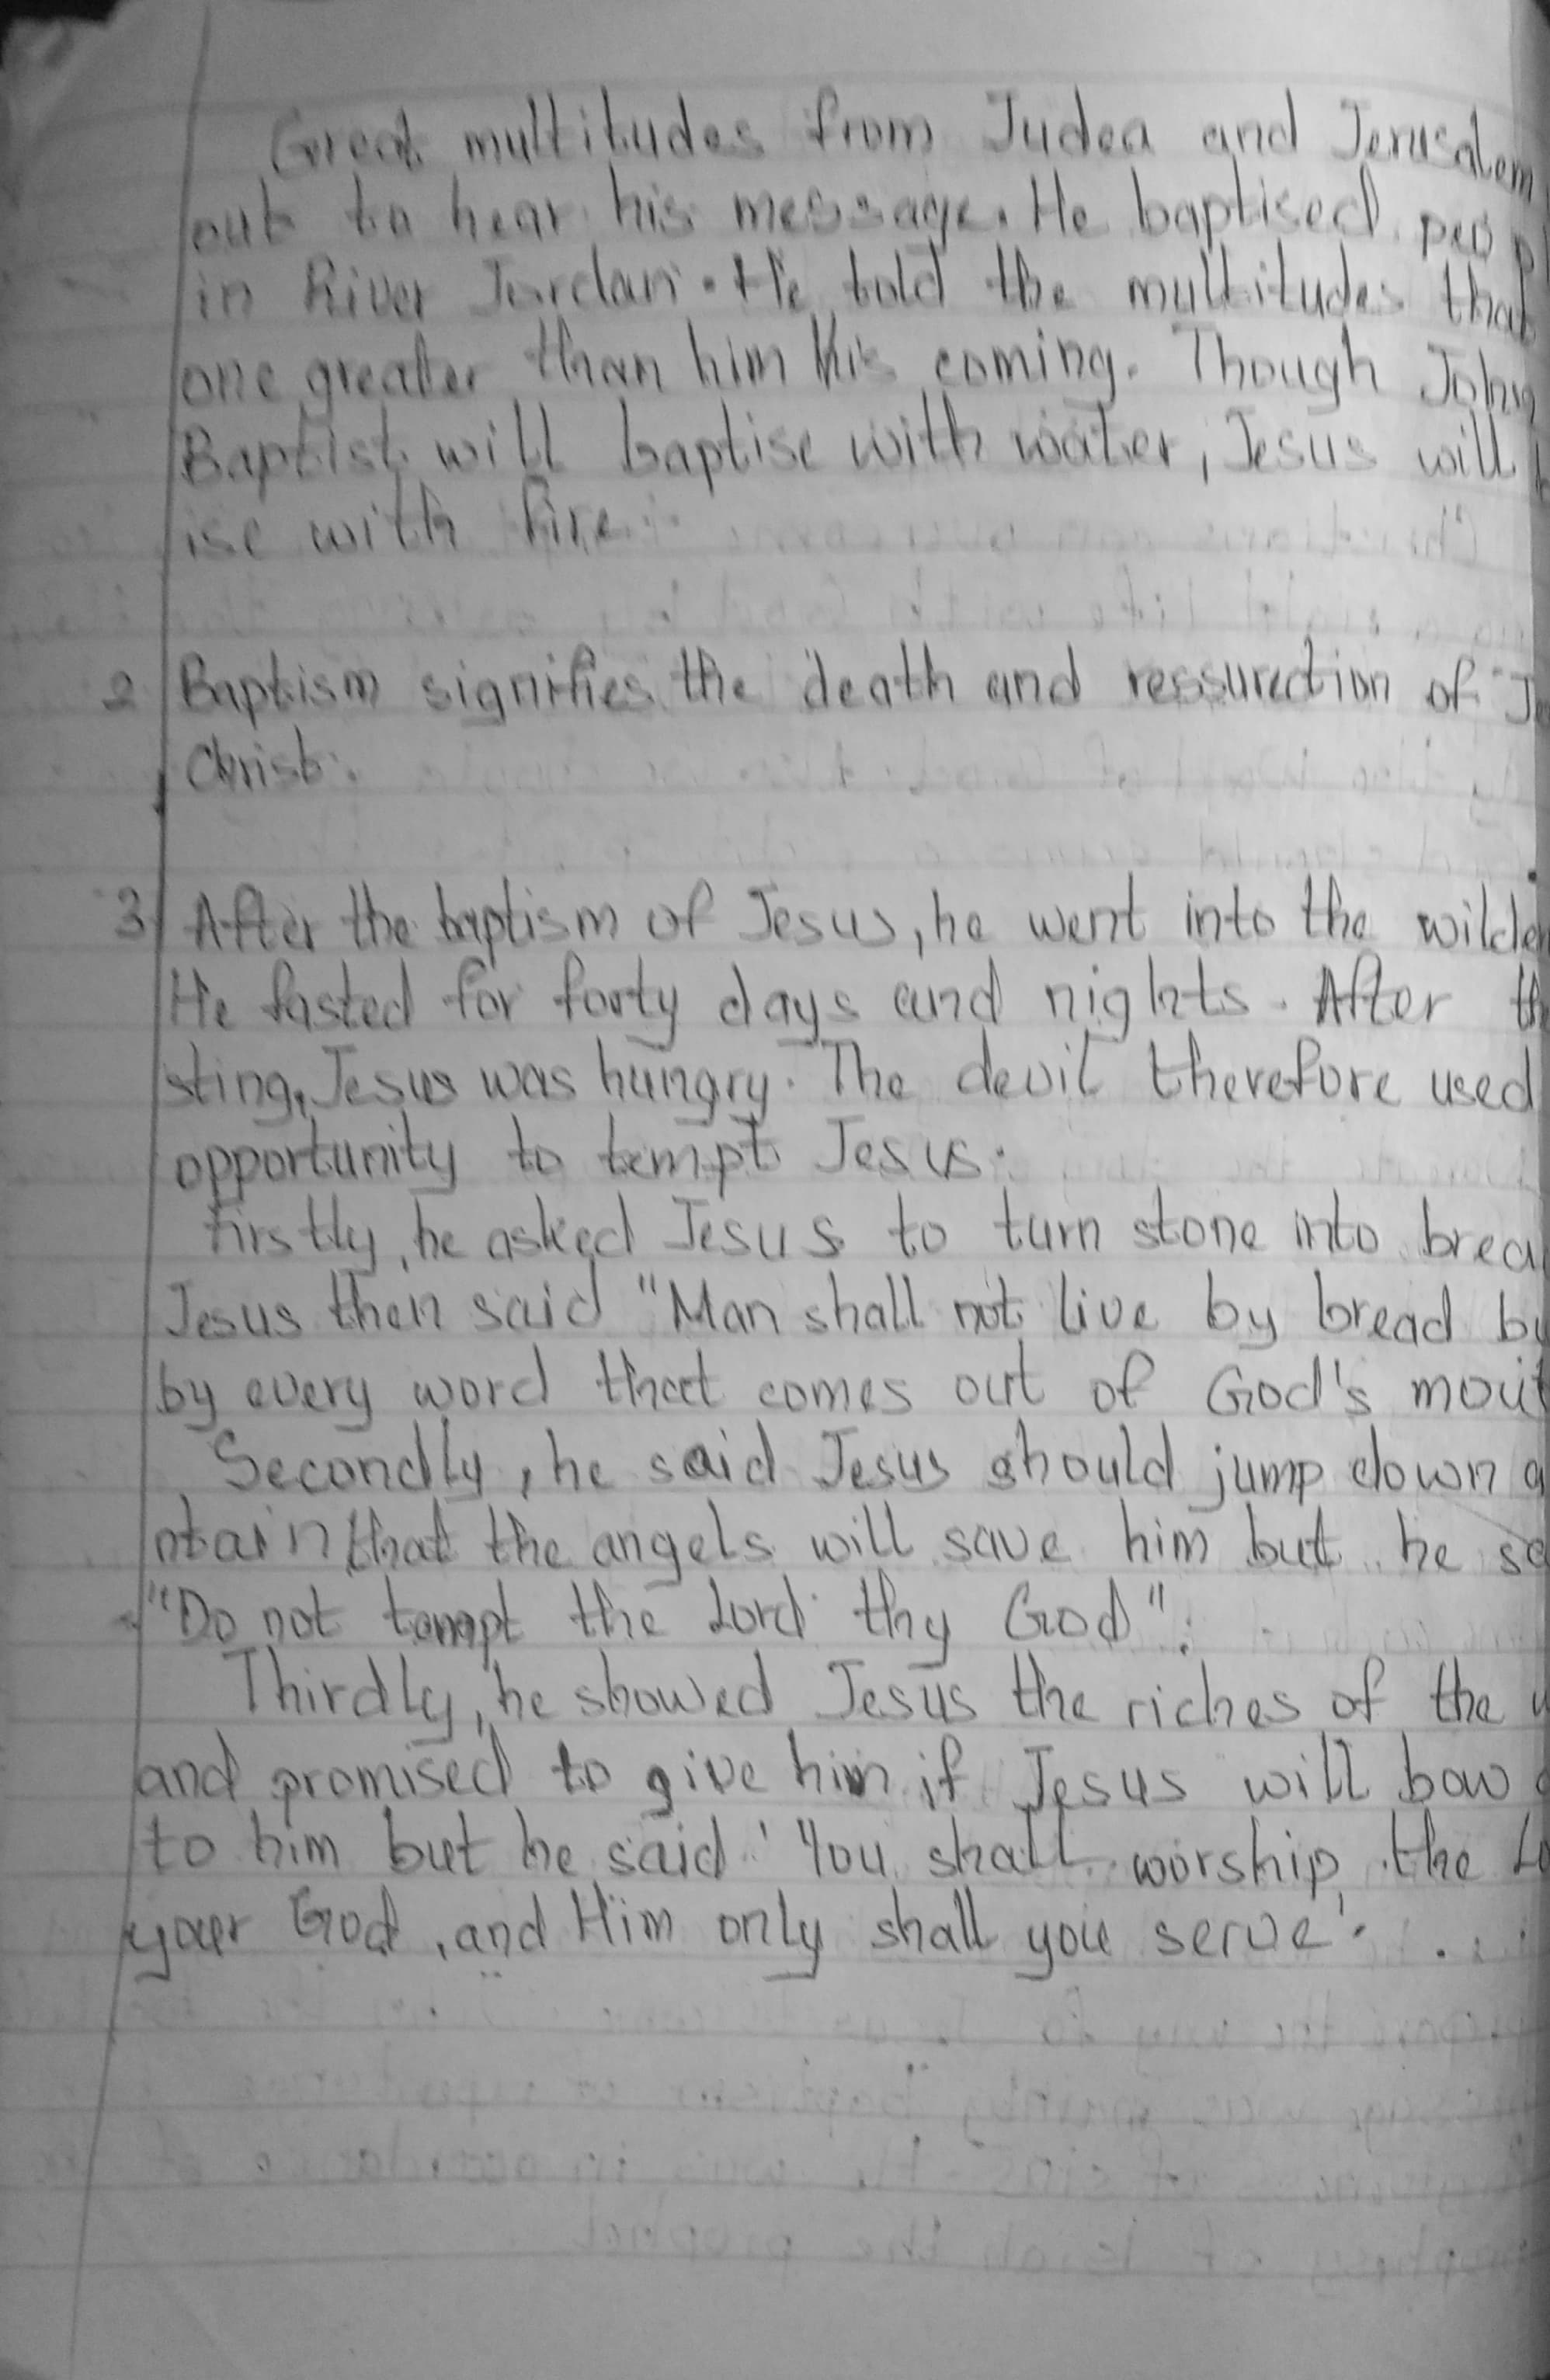 Great multitudes from Judea and Jerusalem
out to hear his message. He baptised peopl
in River Jordan. He told the multitudes that
one greater than him his coming. Though John
Baptist will baptise with water, Jesus will b
ise with fire.
2 Baptism signifies the death and ressurection of Je
Christ.
3 After the baptism of Jesus, he went into the wilder
He fasted for forty days and nights. After th
sting, Jesus was hungry. The devil therefore used
opportunity to tempt Jesus.
Firstly, he asked Jesus to turn stone into brea
Jesus then said "Man shall not live by bread bu
by every word that comes out of God's mout
Secondly, he said Jesus should jump down a
ntain that the angels will save him but he sa
"Do not tempt the Lord thy God".
Thirdly, he showed Jesus the riches of the w
and promised to give him if Jesus will bow d
to him but he said 'You shall worship the Lo
your God, and Him only shall you serve'.